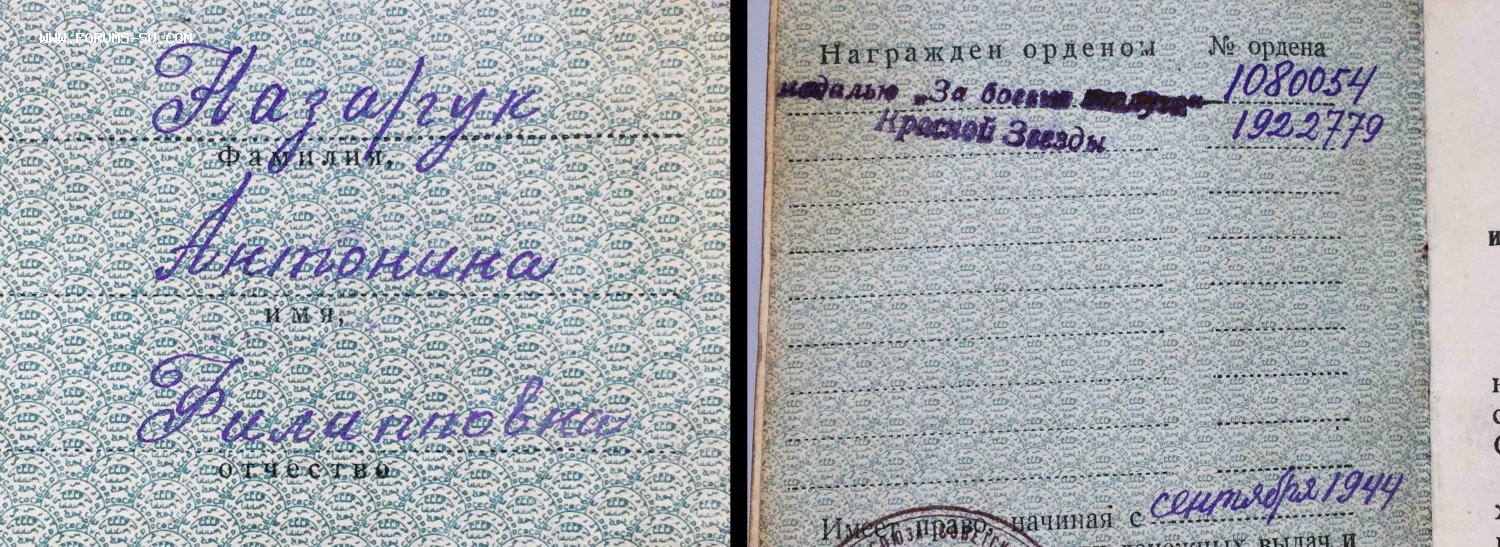 www.forums-su.com
Назарук
Фамилия,
Антонина
имя,
Филипповна
отчество
Награжден орденом № ордена
медалью „За боевые заслуги“ 1080054
Красной Звезды 1922779
Имеет право, начиная с сентября 1944
денежных выдач и